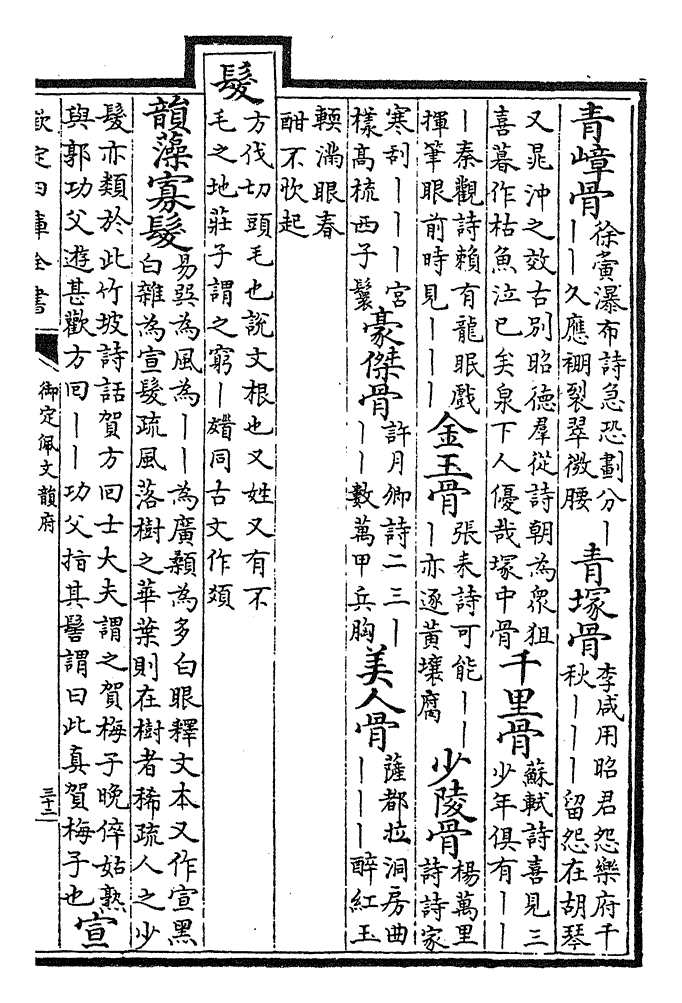 青嶂骨 徐夤瀑布詩急恐劃分丨丨丨久應綳裂翠微腰 青塚骨 李咸用昭君怨樂府千秋丨丨丨留怨在胡琴
又晁沖之效古別昭德羣從詩朝為衆狙喜暮作枯魚泣已矣泉下人優哉塚中骨 千里骨 蘇軾詩喜見三少年俱有丨丨
丨秦觀詩賴有龍眠戲揮筆眼前時見丨丨丨 金玉骨 張耒詩可能丨丨丨亦逐黃壤腐 少陵骨 楊萬里詩詩家
寒刮丨丨丨宮樣高梳西子鬟 豪傑骨 許月卿詩二三丨丨丨數萬甲兵胸 美人骨 薩都拉洞房曲丨丨丨醉紅玉
輭滿眼春酣不吹起
髮 方伐切頭毛也說文根也又姓又有不毛之地莊子謂之窮丨䫕同古文作頒
韻藻 寡髮 易巽為風為丨丨為廣顙為多白眼釋文本又作宣黑白雜為宣髮疏風落樹之華葉則在樹者稀疏人之少
髮亦類於此竹坡詩話賀方回士大夫謂之賀梅子晚倅姑熟與郭功父遊甚歡方回丨丨功父指其髻謂曰此真賀梅子也 宣
欽定四庫全書
御定佩文韻府
三十二